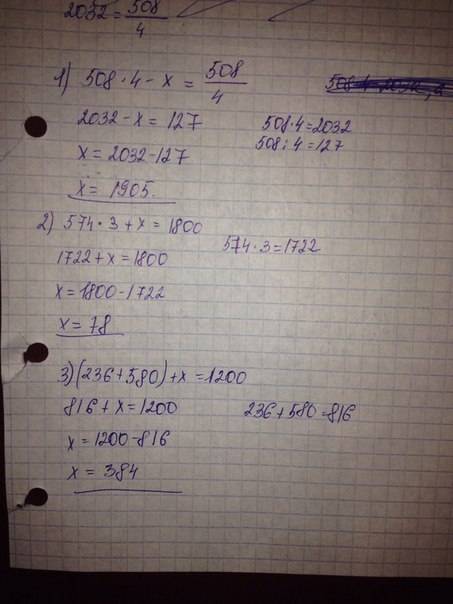 2032 = 508/4
1) 508·4 - x = 508/4
2032 - x = 127
508·4=2032
508:4=127
x = 2032-127
x = 1905.
2) 574·3+x = 1800
574·3=1722
1722+x=1800
x=1800-1722
x=78
3)(236+580)+x=1200
816+x=1200
236+580=816
x=1200-816
x = 384